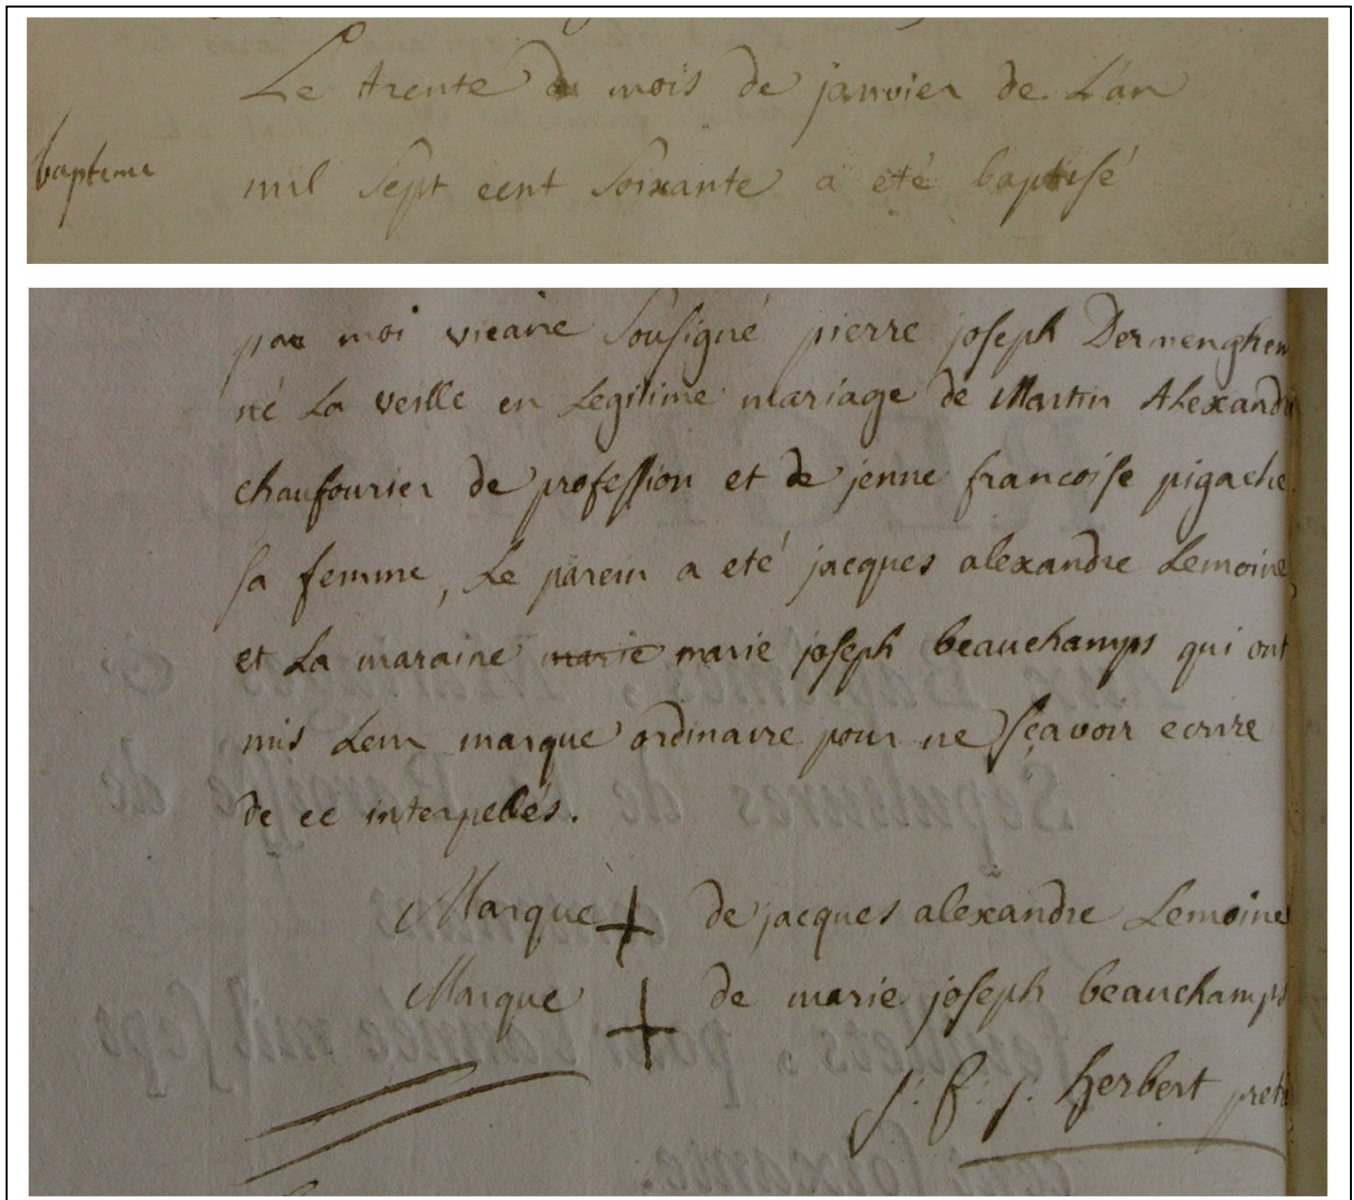 Le trente du mois de janvier de L'an
baptême
mil sept cent soixante a eté baptisé
par moi vicaire sousigné pierre joseph Dermenghem
né La veille en Legitime mariage de Martin Alexandre
chaufourier de profession et de jenne francoise pigache
sa femme, Le parein a eté jacques alexandre Lemoine
et La maraine marie marie joseph beauchamps qui ont
mis Leur marque ordinaire pour ne sçavoir ecrire
de ce interpellés.
Marque + de jacques alexandre Lemoine
Marque + de marie joseph beauchamps
j: f: j. herbert pretre